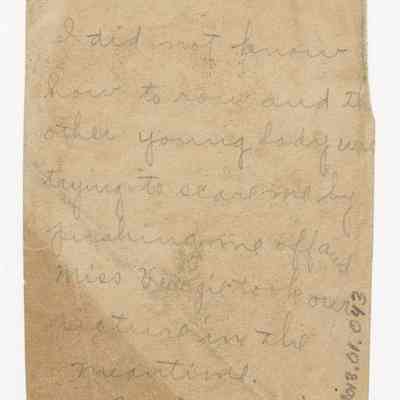 I did not know
how to row and th
other young lady wa
trying to scare me by
pushing me off and
Miss took our
picture in the
meantime.
2018.01.043